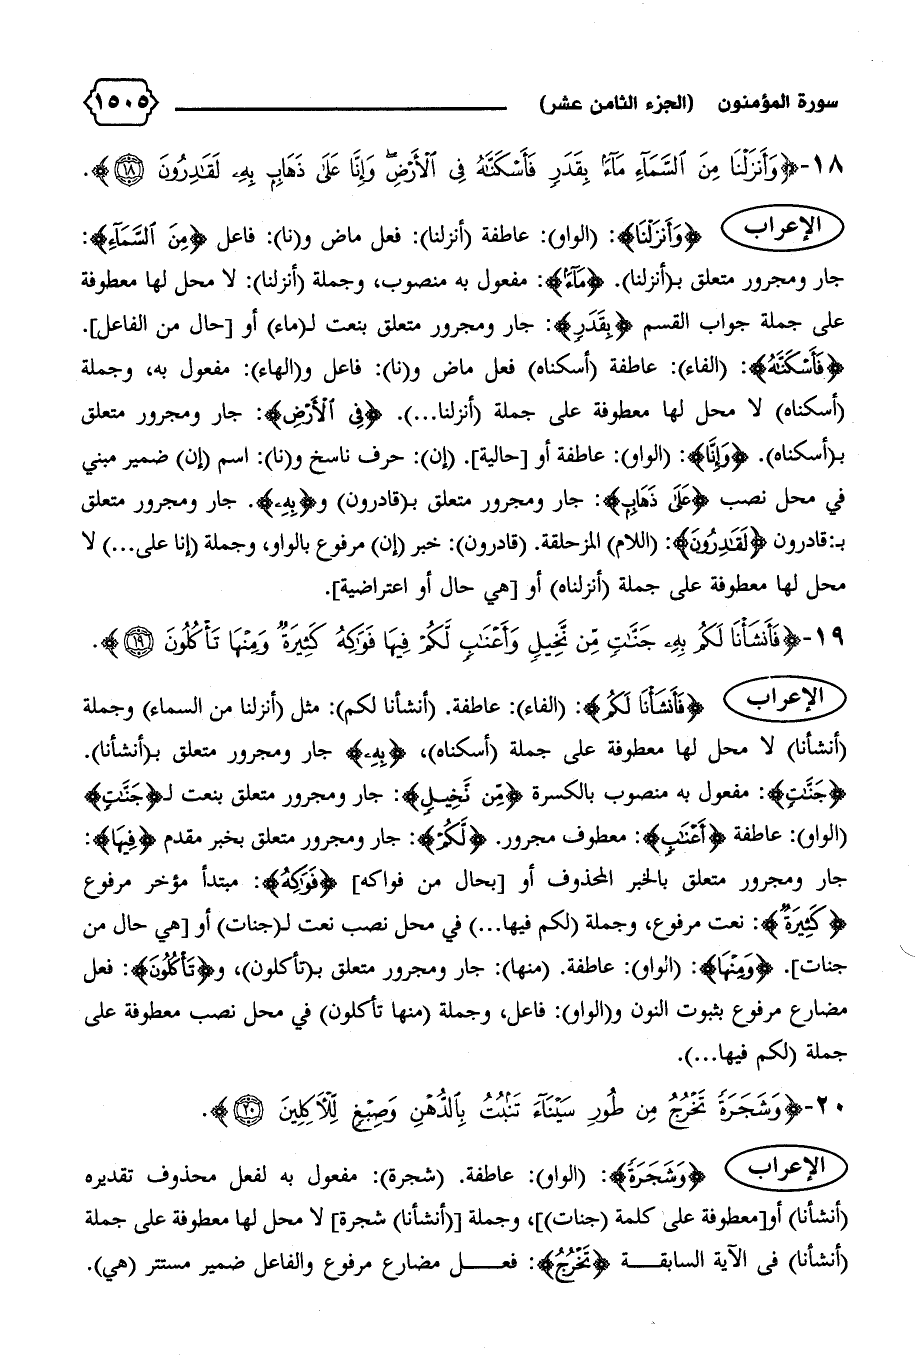 سورة المؤمنون (الجزء الثامن عشر) ١٥٠٥
١٨-﴿وَأَنزَلْنَا مِنَ السَّمَاءِ مَاءً بِقَدَرٍ فَأَسْكَنَّاهُ فِي الْأَرْضِ وَإِنَّا عَلَىٰ ذَهَابٍ بِهِ لَقَادِرُونَ ١٨﴾.
الإعراب ﴿وَأَنزَلْنَا﴾: (الواو): عاطفة (أنزلنا): فعل ماض و(نا): فاعل ﴿مِنَ السَّمَاءِ﴾:
جار ومجرور متعلق بـ(أنزلنا). ﴿مَاءً﴾: مفعول به منصوب، وجملة (أنزلنا): لا محل لها معطوفة
على جملة جواب القسم ﴿بِقَدَرٍ﴾: جار ومجرور متعلق بنعت لـ(ماء) أو [حال من الفاعل].
﴿فَأَسْكَنَّاهُ﴾: (الفاء): عاطفة (أسكناه) فعل ماض و(نا): فاعل و(الهاء): مفعول به، وجملة
(أسكناه) لا محل لها معطوفة على جملة (أنزلنا...). ﴿فِي الْأَرْضِ﴾: جار ومجرور متعلق
بـ(أسكناه). ﴿وَإِنَّا﴾: (الواو): عاطفة أو [حالية]. (إن): حرف ناسخ و(نا): اسم (إن) ضمير مبني
في محل نصب ﴿عَلَىٰ ذَهَابٍ﴾: جار ومجرور متعلق بـ(قادرون) و﴿بِهِ﴾. جار ومجرور متعلق
بـ:قادرون ﴿لَقَادِرُونَ﴾: (اللام) المزحلقة. (قادرون): خبر (إن) مرفوع بالواو، وجملة (إنا على...) لا
محل لها معطوفة على جملة (أنزلناه) أو [هي حال أو اعتراضية].
١٩-﴿فَأَنشَأْنَا لَكُم بِهِ جَنَّاتٍ مِّن نَّخِيلٍ وَأَعْنَابٍ لَّكُمْ فِيهَا فَوَاكِهُ كَثِيرَةٌ وَمِنْهَا تَأْكُلُونَ ١٩﴾.
الإعراب ﴿فَأَنشَأْنَا لَكُم﴾: (الفاء): عاطفة. (أنشأنا لكم): مثل (أنزلنا من السماء) وجملة
(أنشأنا) لا محل لها معطوفة على جملة (أسكناه)، ﴿بِهِ﴾ جار ومجرور متعلق بـ(أنشأنا).
﴿جَنَّاتٍ﴾: مفعول به منصوب بالكسرة ﴿مِّن نَّخِيلٍ﴾: جار ومجرور متعلق بنعت لـ﴿جَنَّاتٍ﴾
(الواو): عاطفة ﴿أَعْنَابٍ﴾: معطوف مجرور. ﴿لَّكُمْ﴾: جار ومجرور متعلق بخبر مقدم ﴿فِيهَا﴾:
جار ومجرور متعلق بالخبر المحذوف أو [بحال من فواكه] ﴿فَوَاكِهُ﴾: مبتدأ مؤخر مرفوع
﴿كَثِيرَةٌ﴾: نعت مرفوع، وجملة (لكم فيها...) في محل نصب نعت لـ(جنات) أو [هي حال من
جنات]. ﴿وَمِنْهَا﴾: (الواو): عاطفة. (منها): جار ومجرور متعلق بـ(تأكلون)، و﴿تَأْكُلُونَ﴾: فعل
مضارع مرفوع بثبوت النون و(الواو): فاعل، وجملة (منها تأكلون) في محل نصب معطوفة على
جملة (لكم فيها...).
٢٠-﴿وَشَجَرَةً تَخْرُجُ مِن طُورِ سَيْنَاءَ تَنبُتُ بِالدُّهْنِ وَصِبْغٍ لِّلْآكِلِينَ ٢٠﴾.
الإعراب ﴿وَشَجَرَةً﴾: (الواو): عاطفة. (شجرة): مفعول به لفعل محذوف تقديره
(أنشأنا) أو[معطوفة على كلمة (جنات)]، وجملة [(أنشأنا) شجرة] لا محل لها معطوفة على جملة
(أنشأنا) في الآية السابقة ﴿تَخْرُجُ﴾: فعل مضارع مرفوع والفاعل ضمير مستتر (هي).